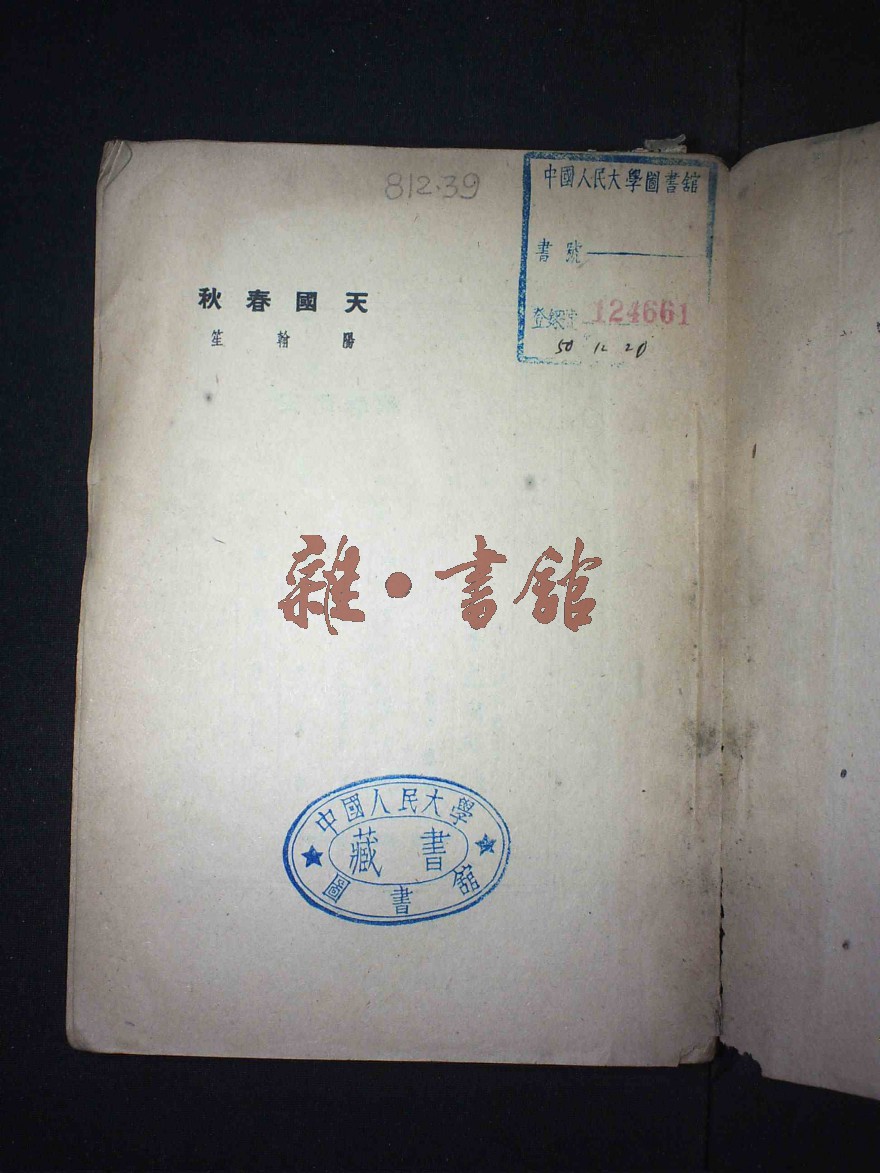 812.39
中國人民大學圖書舘
書號
登録号 124661
50 12 20
秋春國天
笙翰陽
雜·書舘
中國人民大學
藏書
圖書舘